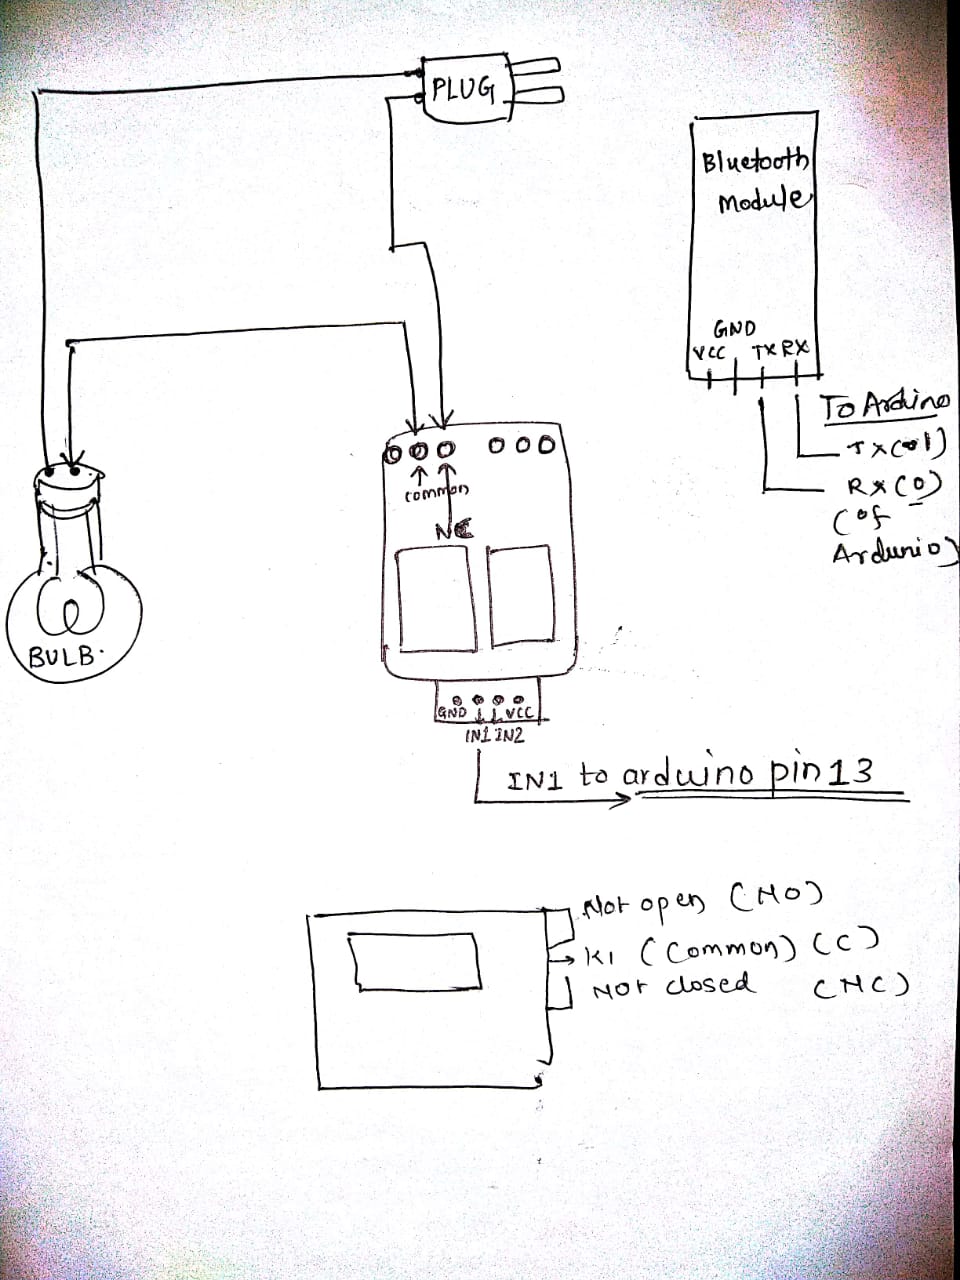 PLUG
Bluetooth
Module
GND
VCC TX RX
To Arduino
TX(01)
RX(0)
(of
Ardunio)
common
NC
BULB.
GND VCC
IN1 IN2
IN1 to arduino pin 13
Not open (NO)
K1 (Common) (C)
Not closed (NC)